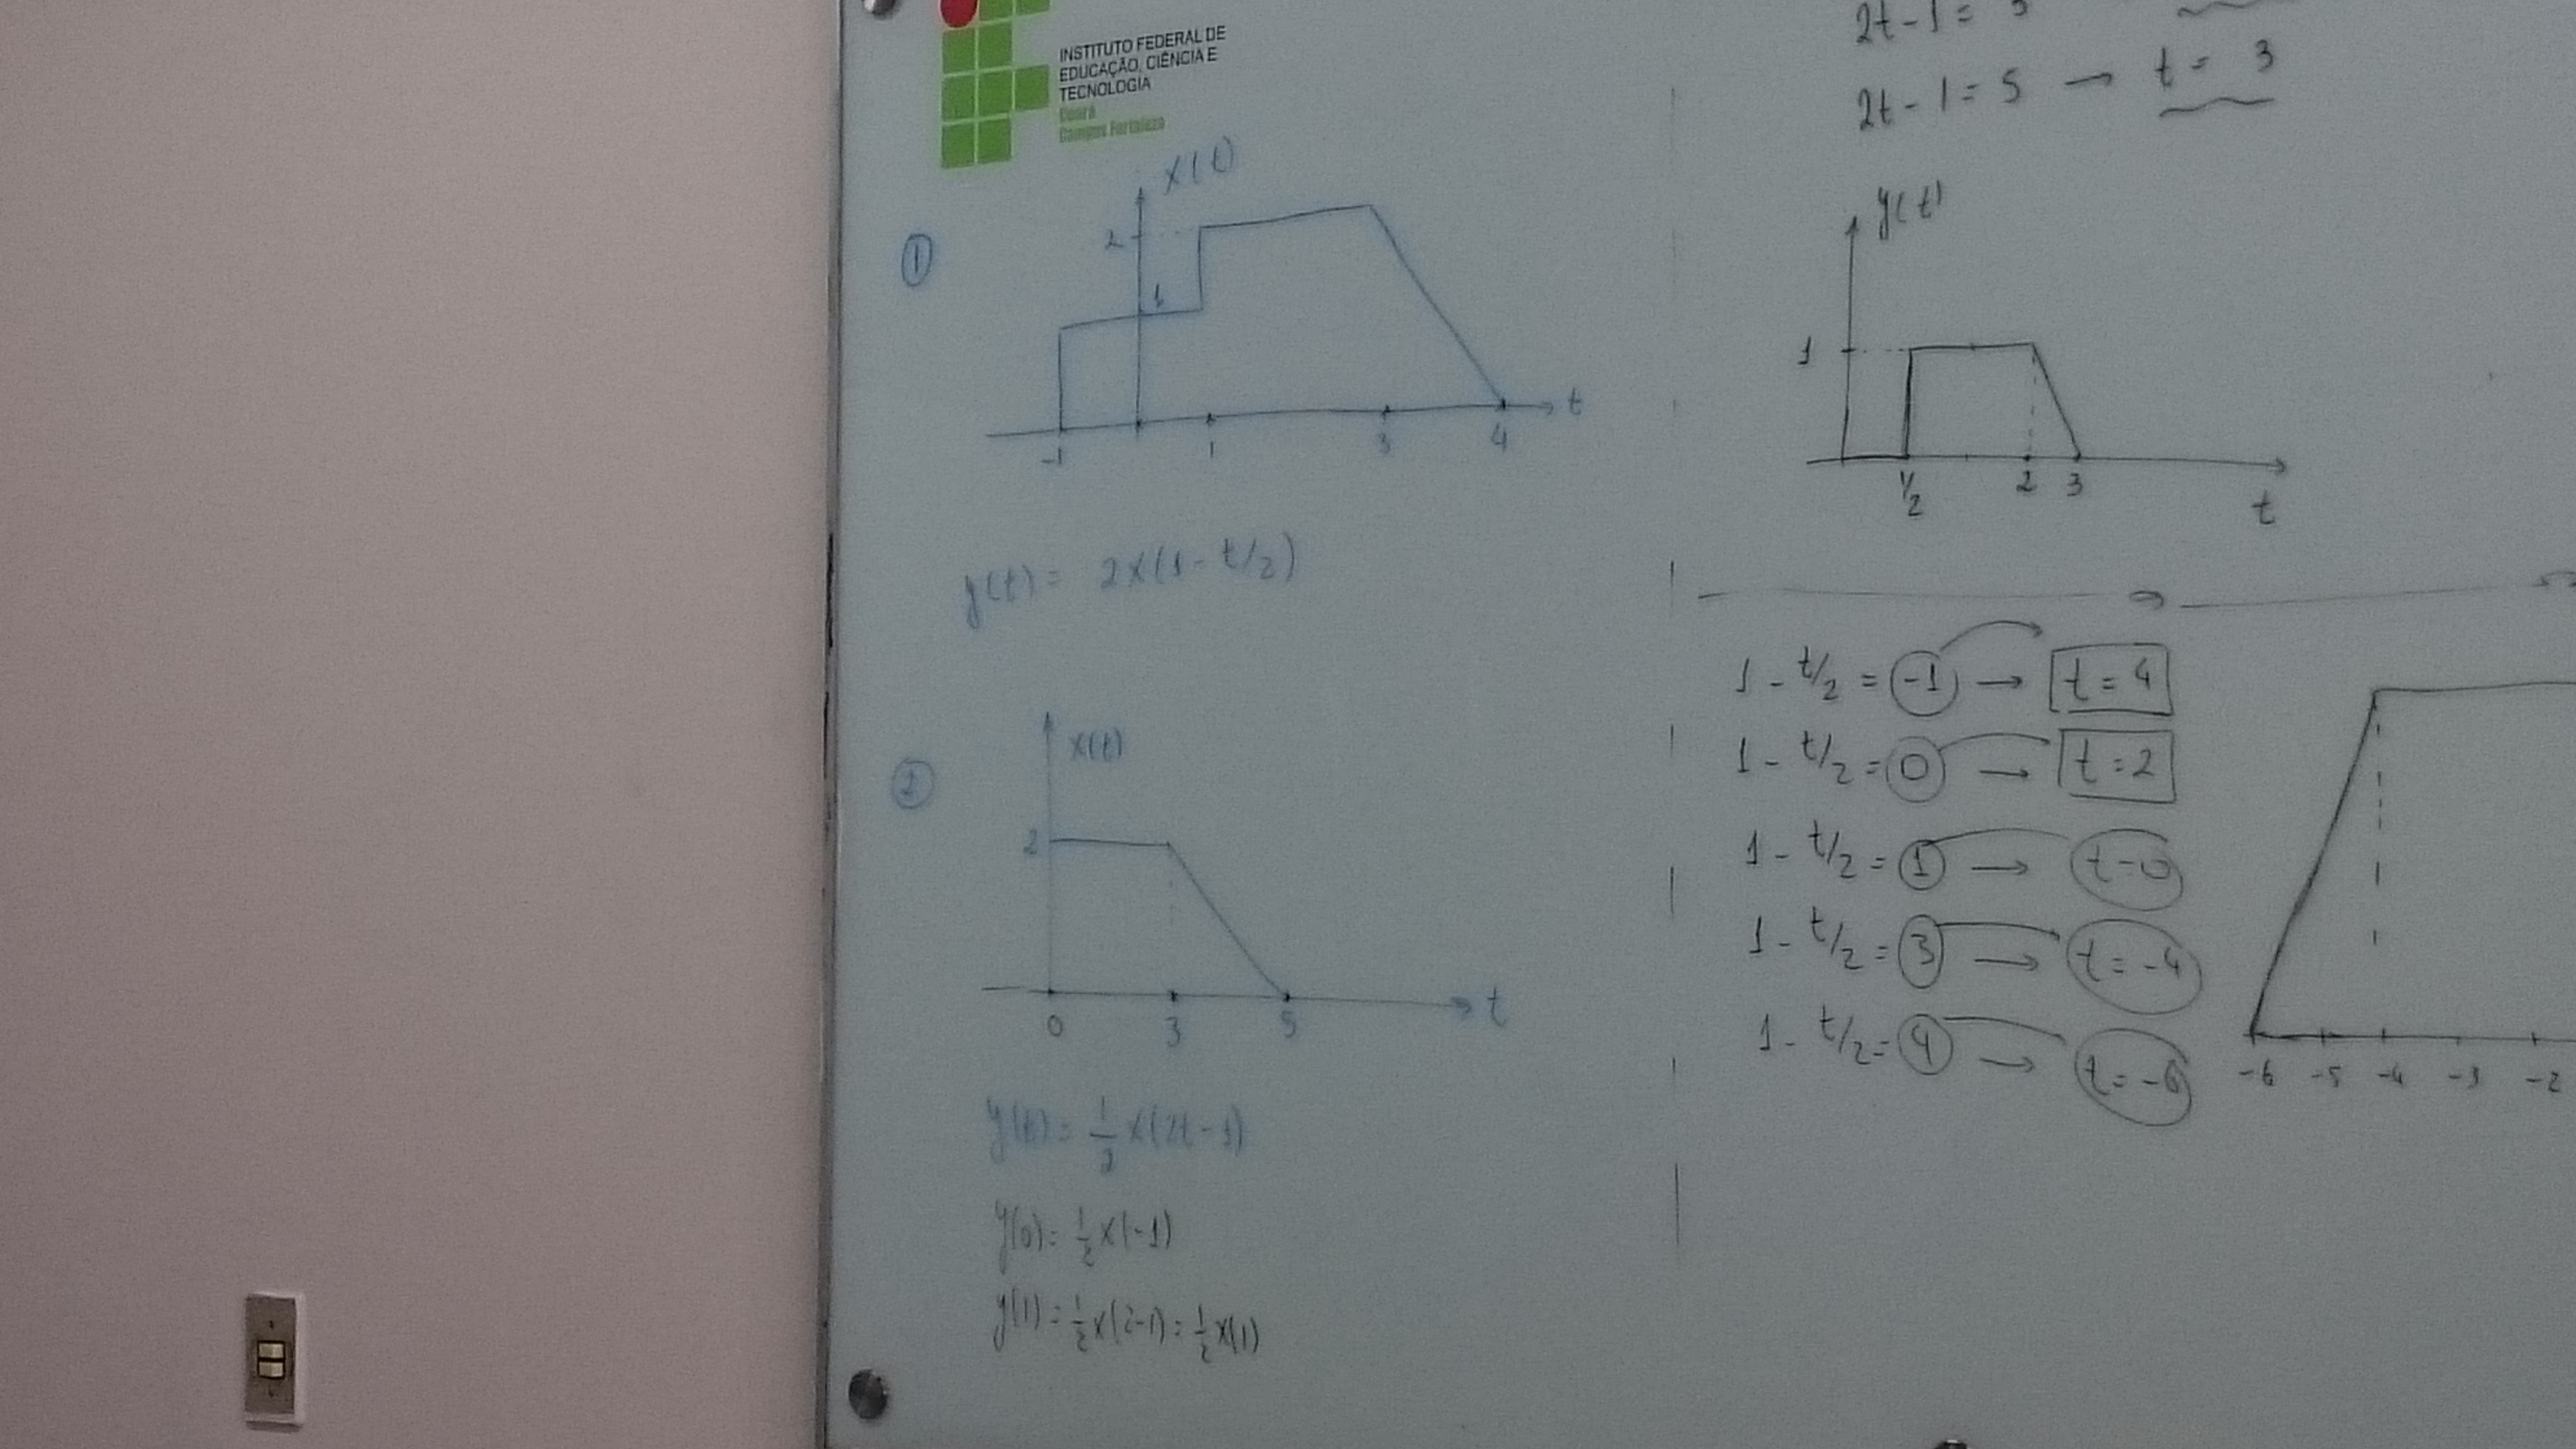 INSTITUTO FEDERAL DE
EDUCAÇÃO, CIÊNCIA E
TECNOLOGIA
Ceará
Campus Fortaleza
①
x(t)
2
1
-1 1 3 4 t
y(t) = 2x(1 - t/2)
②
x(t)
2
0 3 5 t
y(t) = 1/2 x(2t - 1)
y(0) = 1/2 x(-1)
y(1) = 1/2 x(2-1) = 1/2 x(1)
2t - 1 =
2t - 1 = 5 → t = 3
y(t)
1
1/2 2 3
t
1 - t/2 = -1 → t = 4
1 - t/2 = 0 → t = 2
1 - t/2 = 1 → t = 0
1 - t/2 = 3 → t = -4
1 - t/2 = 4 → t = -6
-6 -5 -4 -3 -2